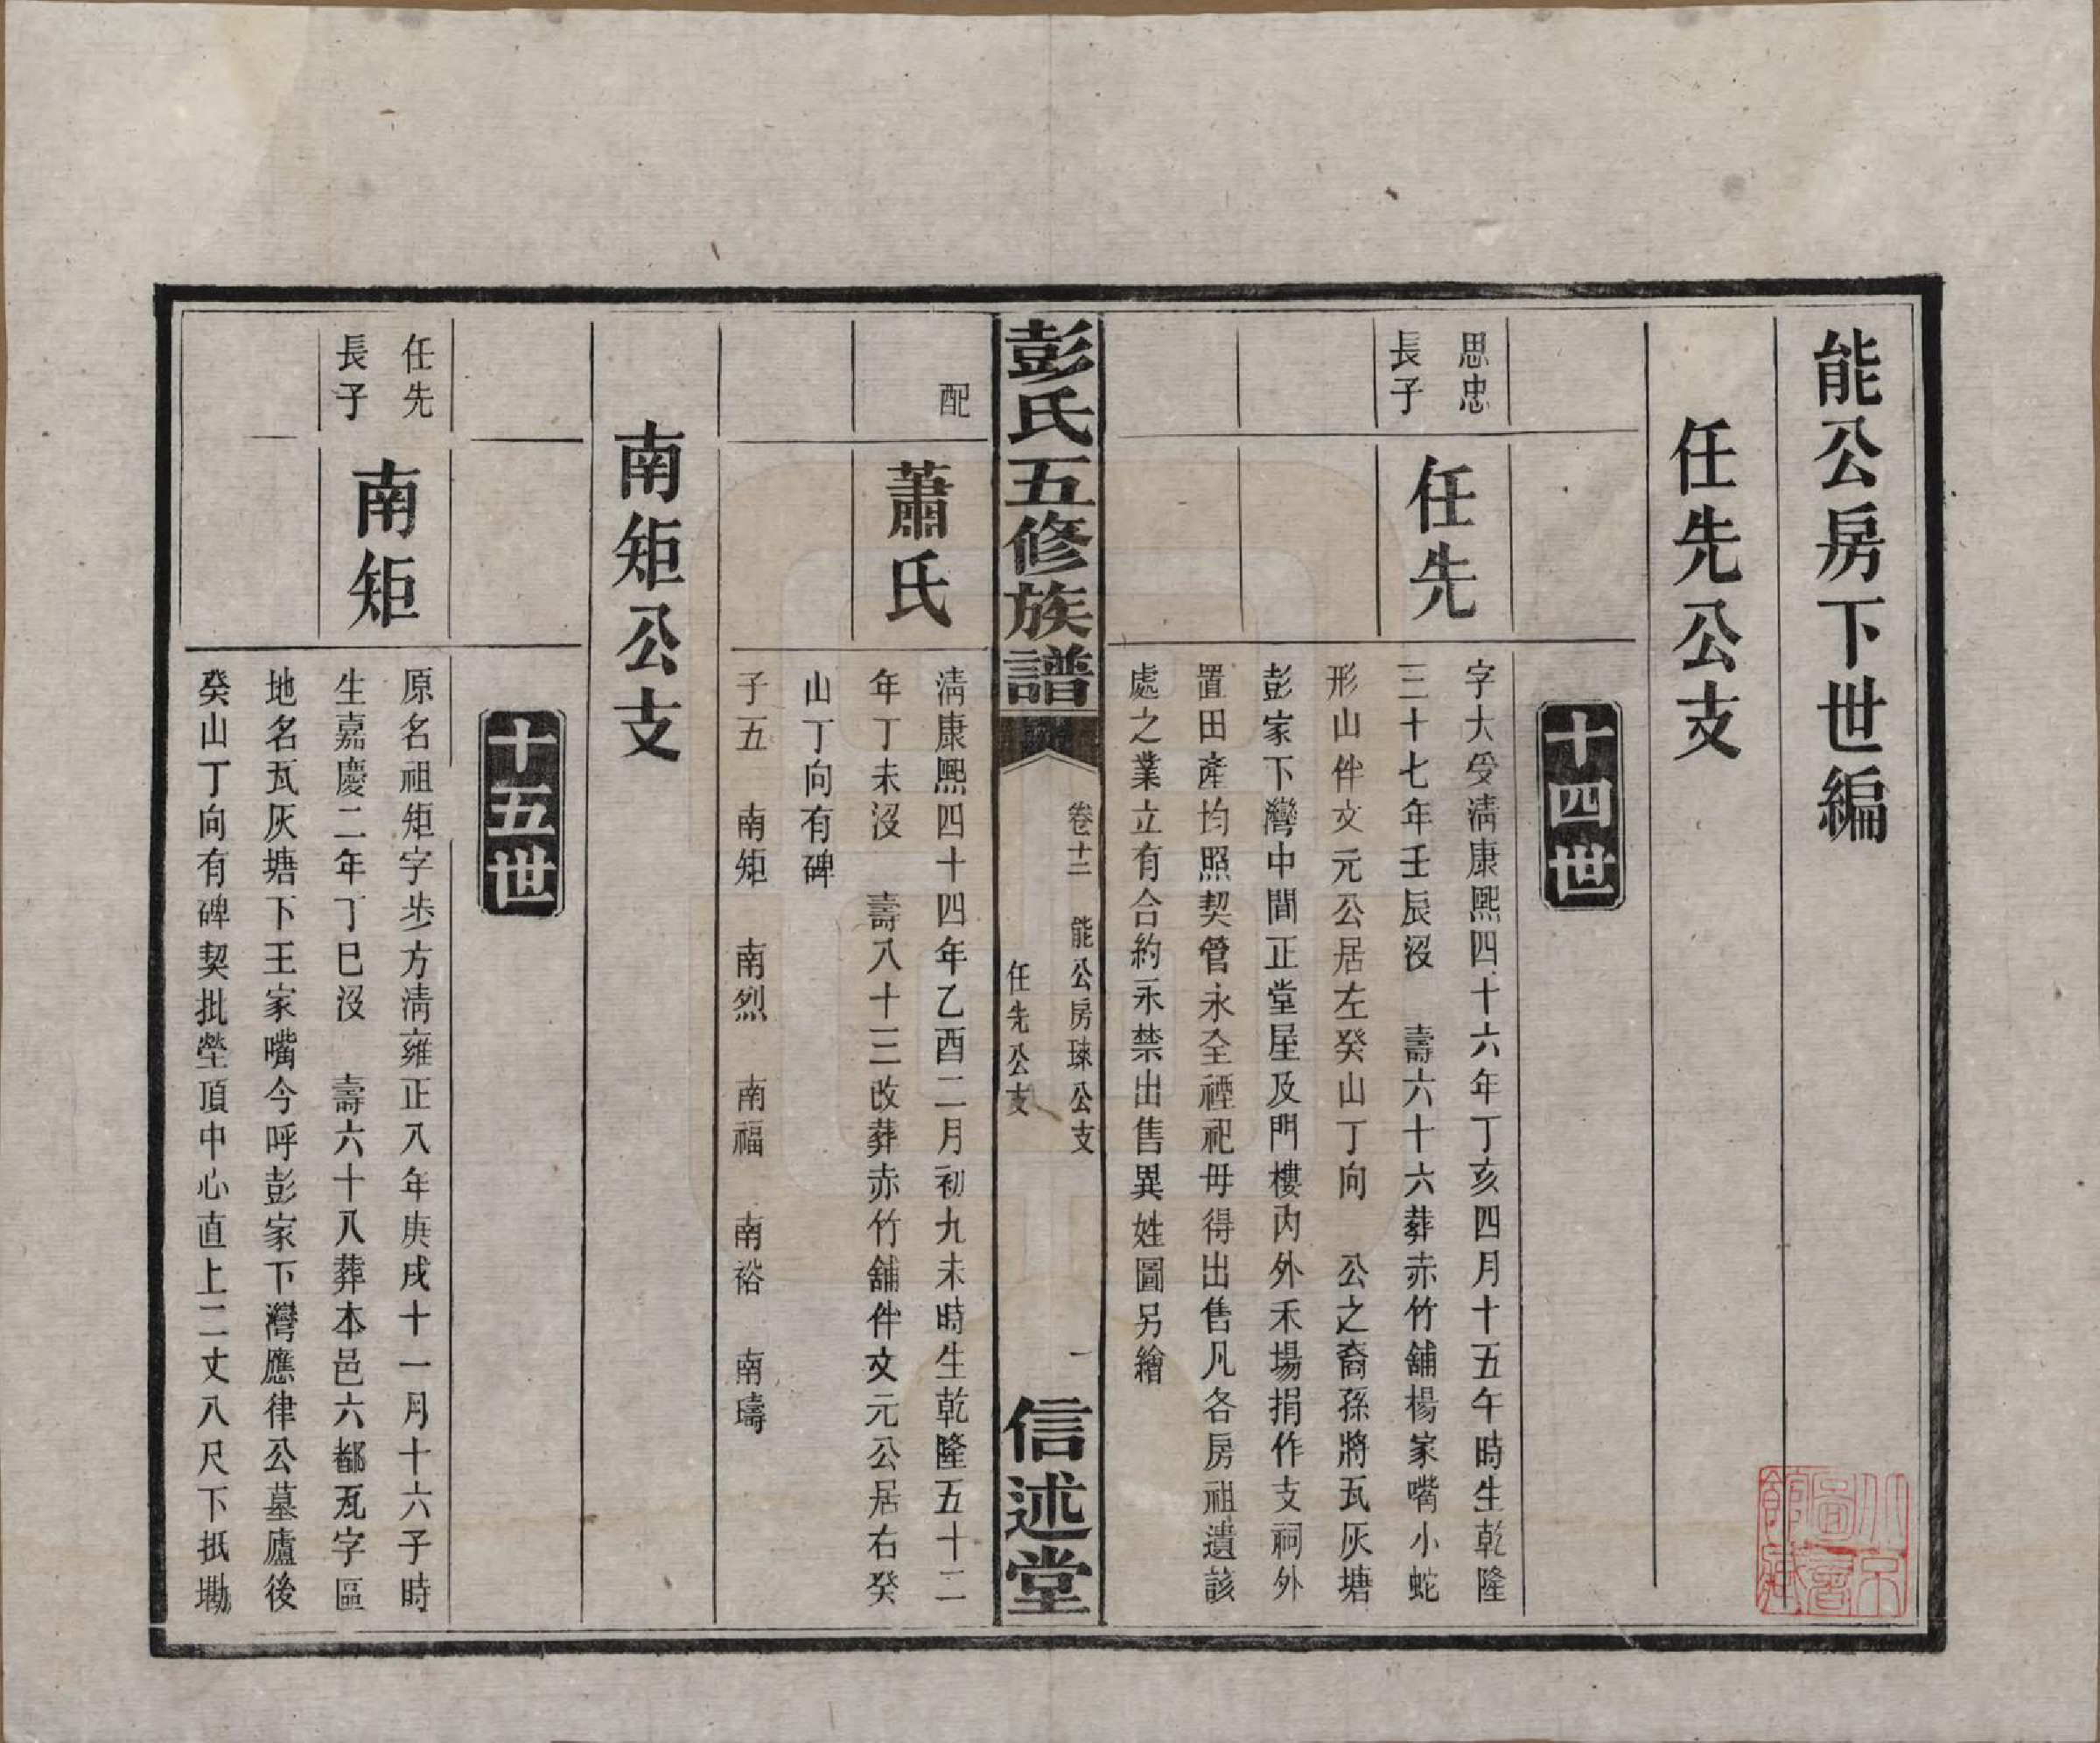 能公房下世編
任先公支
十四世
思忠
長子
任先
字大受淸康熙四十六年丁亥四月十五午時生乾隆
三十七年壬辰沒　壽六十六葬赤竹舖楊家嘴小蛇
形山伴文元公居左癸山丁向　公之裔孫將瓦灰塘
彭家下灣中間正堂屋及門樓內外禾場捐作支祠外
置田產均照契管永全禋祀毋得出售凡各房祖遺該
處之業立有合約永禁出售異姓圖另繪
彭氏五修族譜
卷十二　能公房瑓公支
任先公支
一
信述堂
配
蕭氏
淸康熙四十四年乙酉二月初九未時生乾隆五十二
年丁未沒　壽八十三改葬赤竹舖伴文元公居右癸
山丁向有碑
子五　南矩　南烈　南福　南裕　南璹
南矩公支
十五世
任先
長子
南矩
原名祖矩字步方淸雍正八年庚戌十一月十六子時
生嘉慶二年丁巳沒　壽六十八葬本邑六都瓦字區
地名瓦灰塘下王家嘴今呼彭家下灣應律公墓廬後
癸山丁向有碑契批塋頂中心直上二丈八尺下抵墈
北京圖書館藏